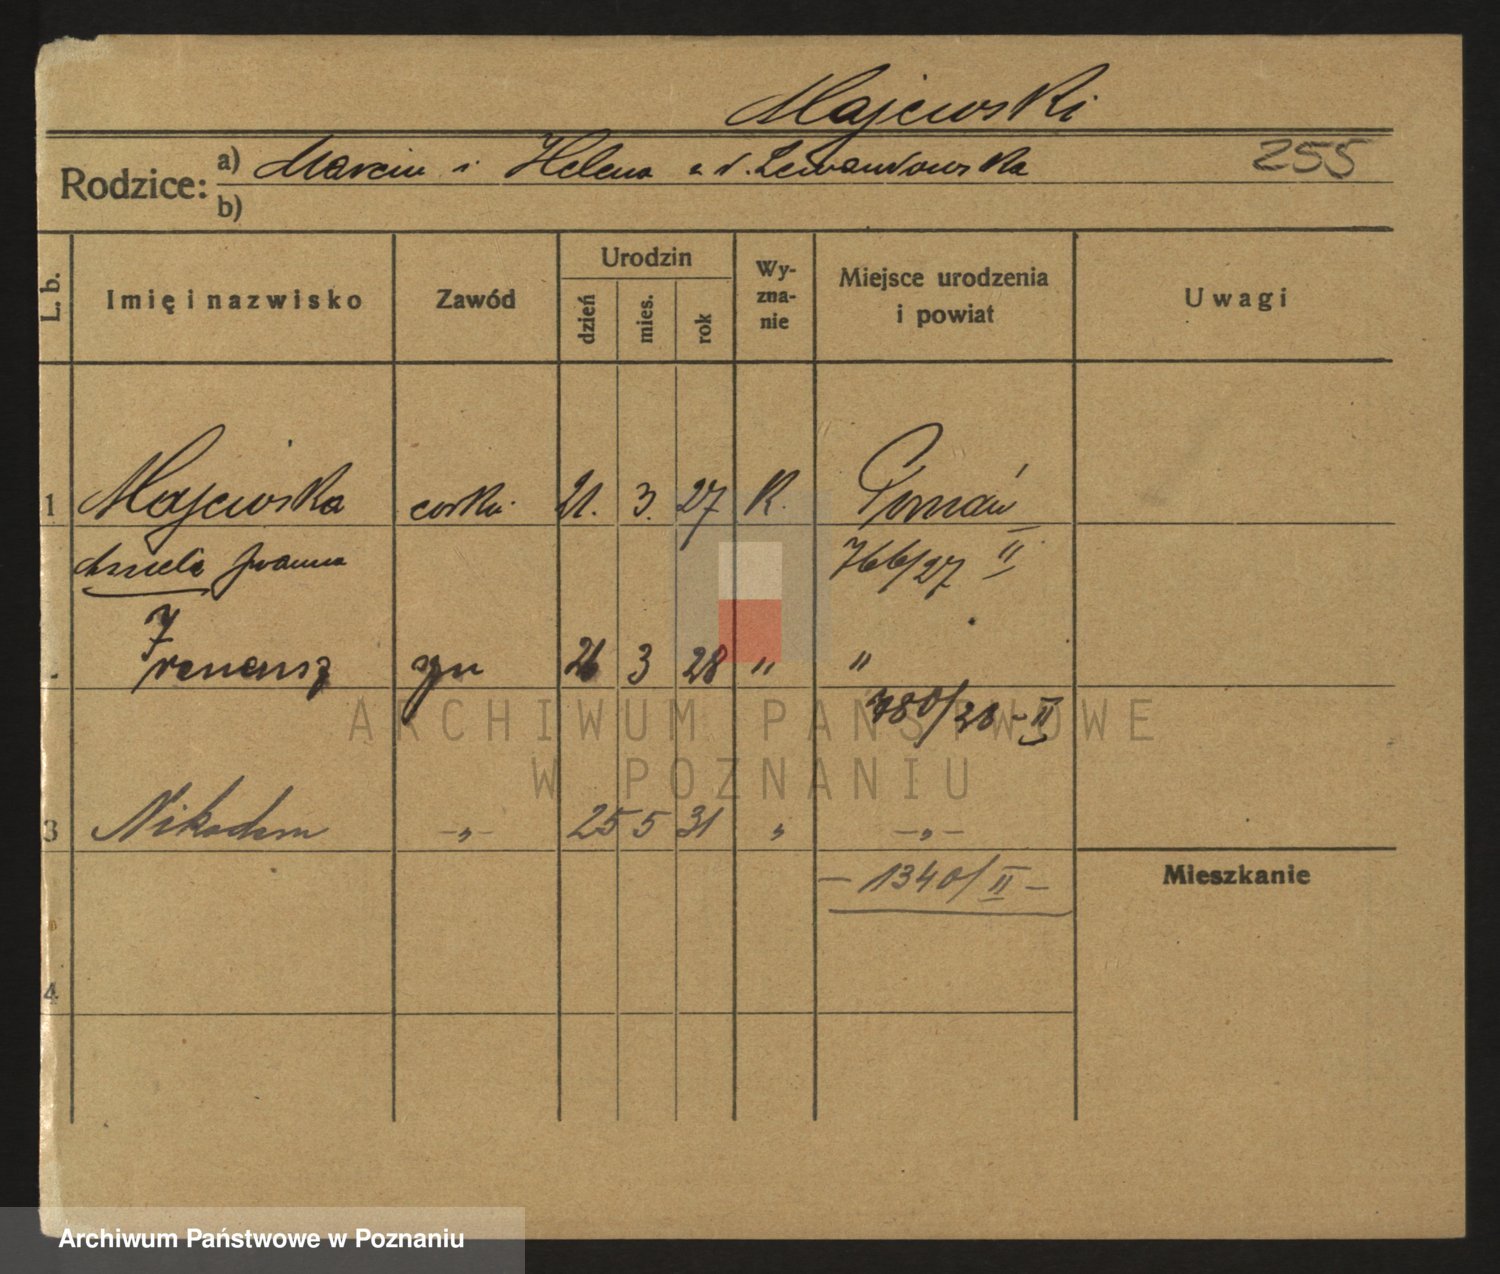 Majewski
Rodzice: a) Marcin i Helena z d. Lewandowska 255
b)
L. b. Imię i nazwisko Zawód Urodzin dzień mies. rok Wyzna-nie Miejsce urodzenia i powiat Uwagi
1 Majewska corka 21. 3. 27 K. Poznań
Aniela Joanna 766/27 II
Ireneusz syn 26 3 28 " "
780/28 - II
3 Nikodem -„- 25 5 31 „ -„-
- 1340/II -
Mieszkanie
4
ARCHIWUM PAŃSTWOWE
W POZNANIU
Archiwum Państwowe w Poznaniu